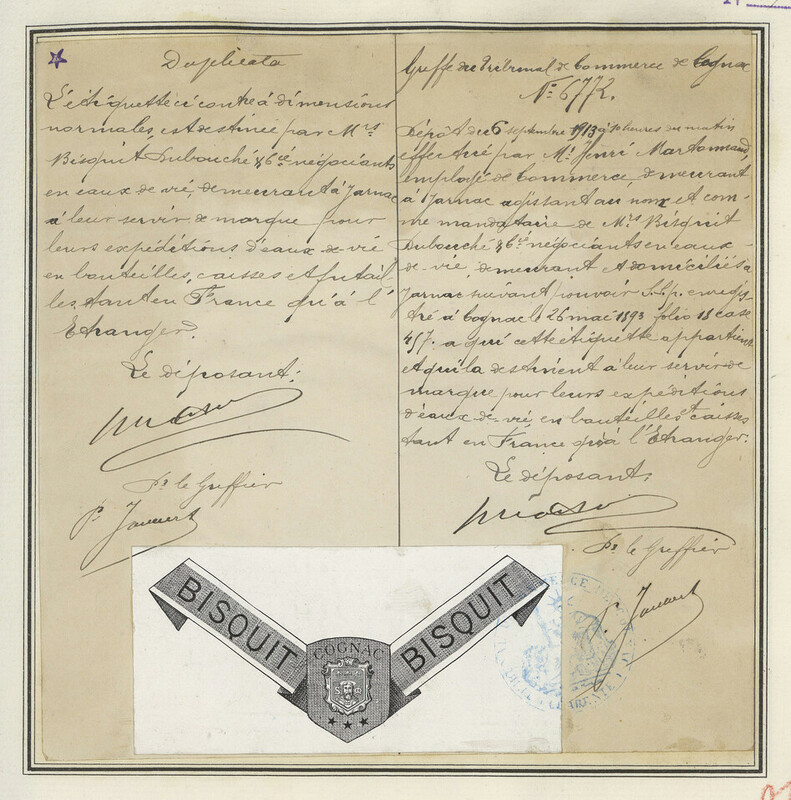 Duplicata
L'étiquette ci contre à dimensions
normales, est destinée par Mrs
Bisquit Dubouché & Cie négociants
en eaux de vie, demeurant à Jarnac
à leur servir de marque pour
leurs expéditions d'eaux-de-vie
en bouteilles, caisses et futail-
les tant en France qu'à l'
Etranger.
Le déposant:
Pr le Greffier
Greffe du Tribunal de Commerce de Cognac
No 6772.
Dépôt du 6 septembre 1913 à 10 heures du matin
effectué par Mr Henri Martonnaud,
employé de commerce, demeurant
à Jarnac agissant au nom et com-
me mandataire de Mrs Bisquit
Dubouché & Cie négociants en eaux-
de-vie, demeurant et domiciliés à
Jarnac suivant pouvoir S.S.p. enregis-
tré à Cognac le 26 mai 1893 folio 18 case
457. a qui cette étiquette appartient
et qui la destinent à leur servir de
marque pour leurs expéditions
d'eaux-de-vie en bouteilles et caisses
tant en France qu'à l'Etranger.
Le déposant:
Pr le Greffier
BISQUIT
COGNAC
BISQUIT